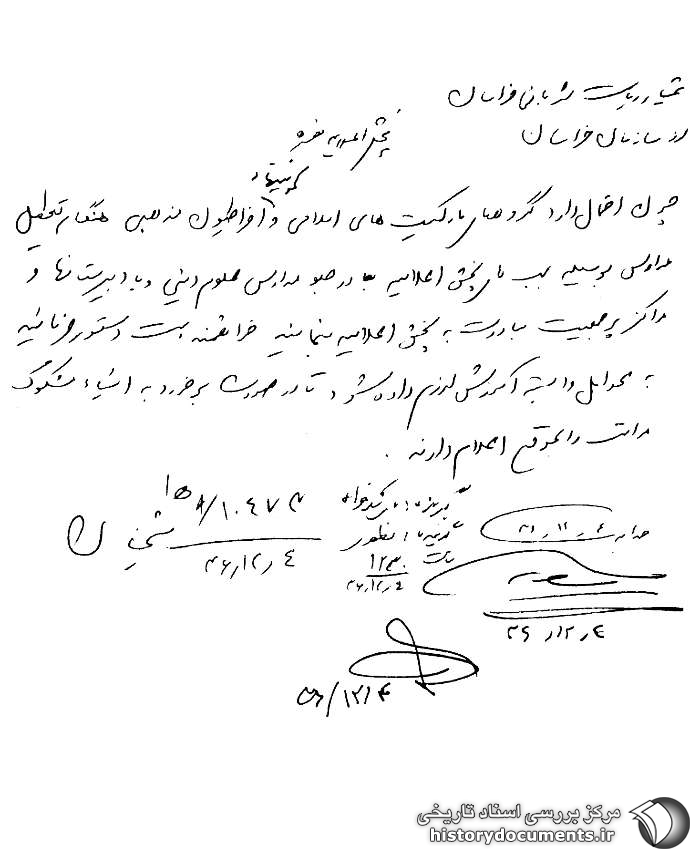 تیمسار ریاست شهربانی خراسان
از سازمان خراسان
پخش اعلامیه مضره
کمونیستها و
چون احتمال دارد گروههای مارکسیست های اسلامی و افراطیون مذهبی هنگام تعطیل
مدارس بوسیله بمب های پخش اعلامیه در جلو مدارس علوم دینی و یا دبیرستانها و
مراکز پرجمعیت مبادرت به پخش اعلامیه بنمایند خواهشمند است دستور فرمائید
به عوامل وابسته آموزش لازم داده شود تا در صورت برخورد به اشیاء مشکوک
مراتب را بموقع اعلام دارند.
۱۰۴۷۳/۹ ه‍ ۱
۳۶،۱۲،۴
۱۲۳۰
۳۶،۱۲،۴
۳۶،۱۲،۴
۳۶،۱۲،۴
۵۶/۱۲/۴
مرکز بررسی اسناد تاریخی
historydocuments.ir